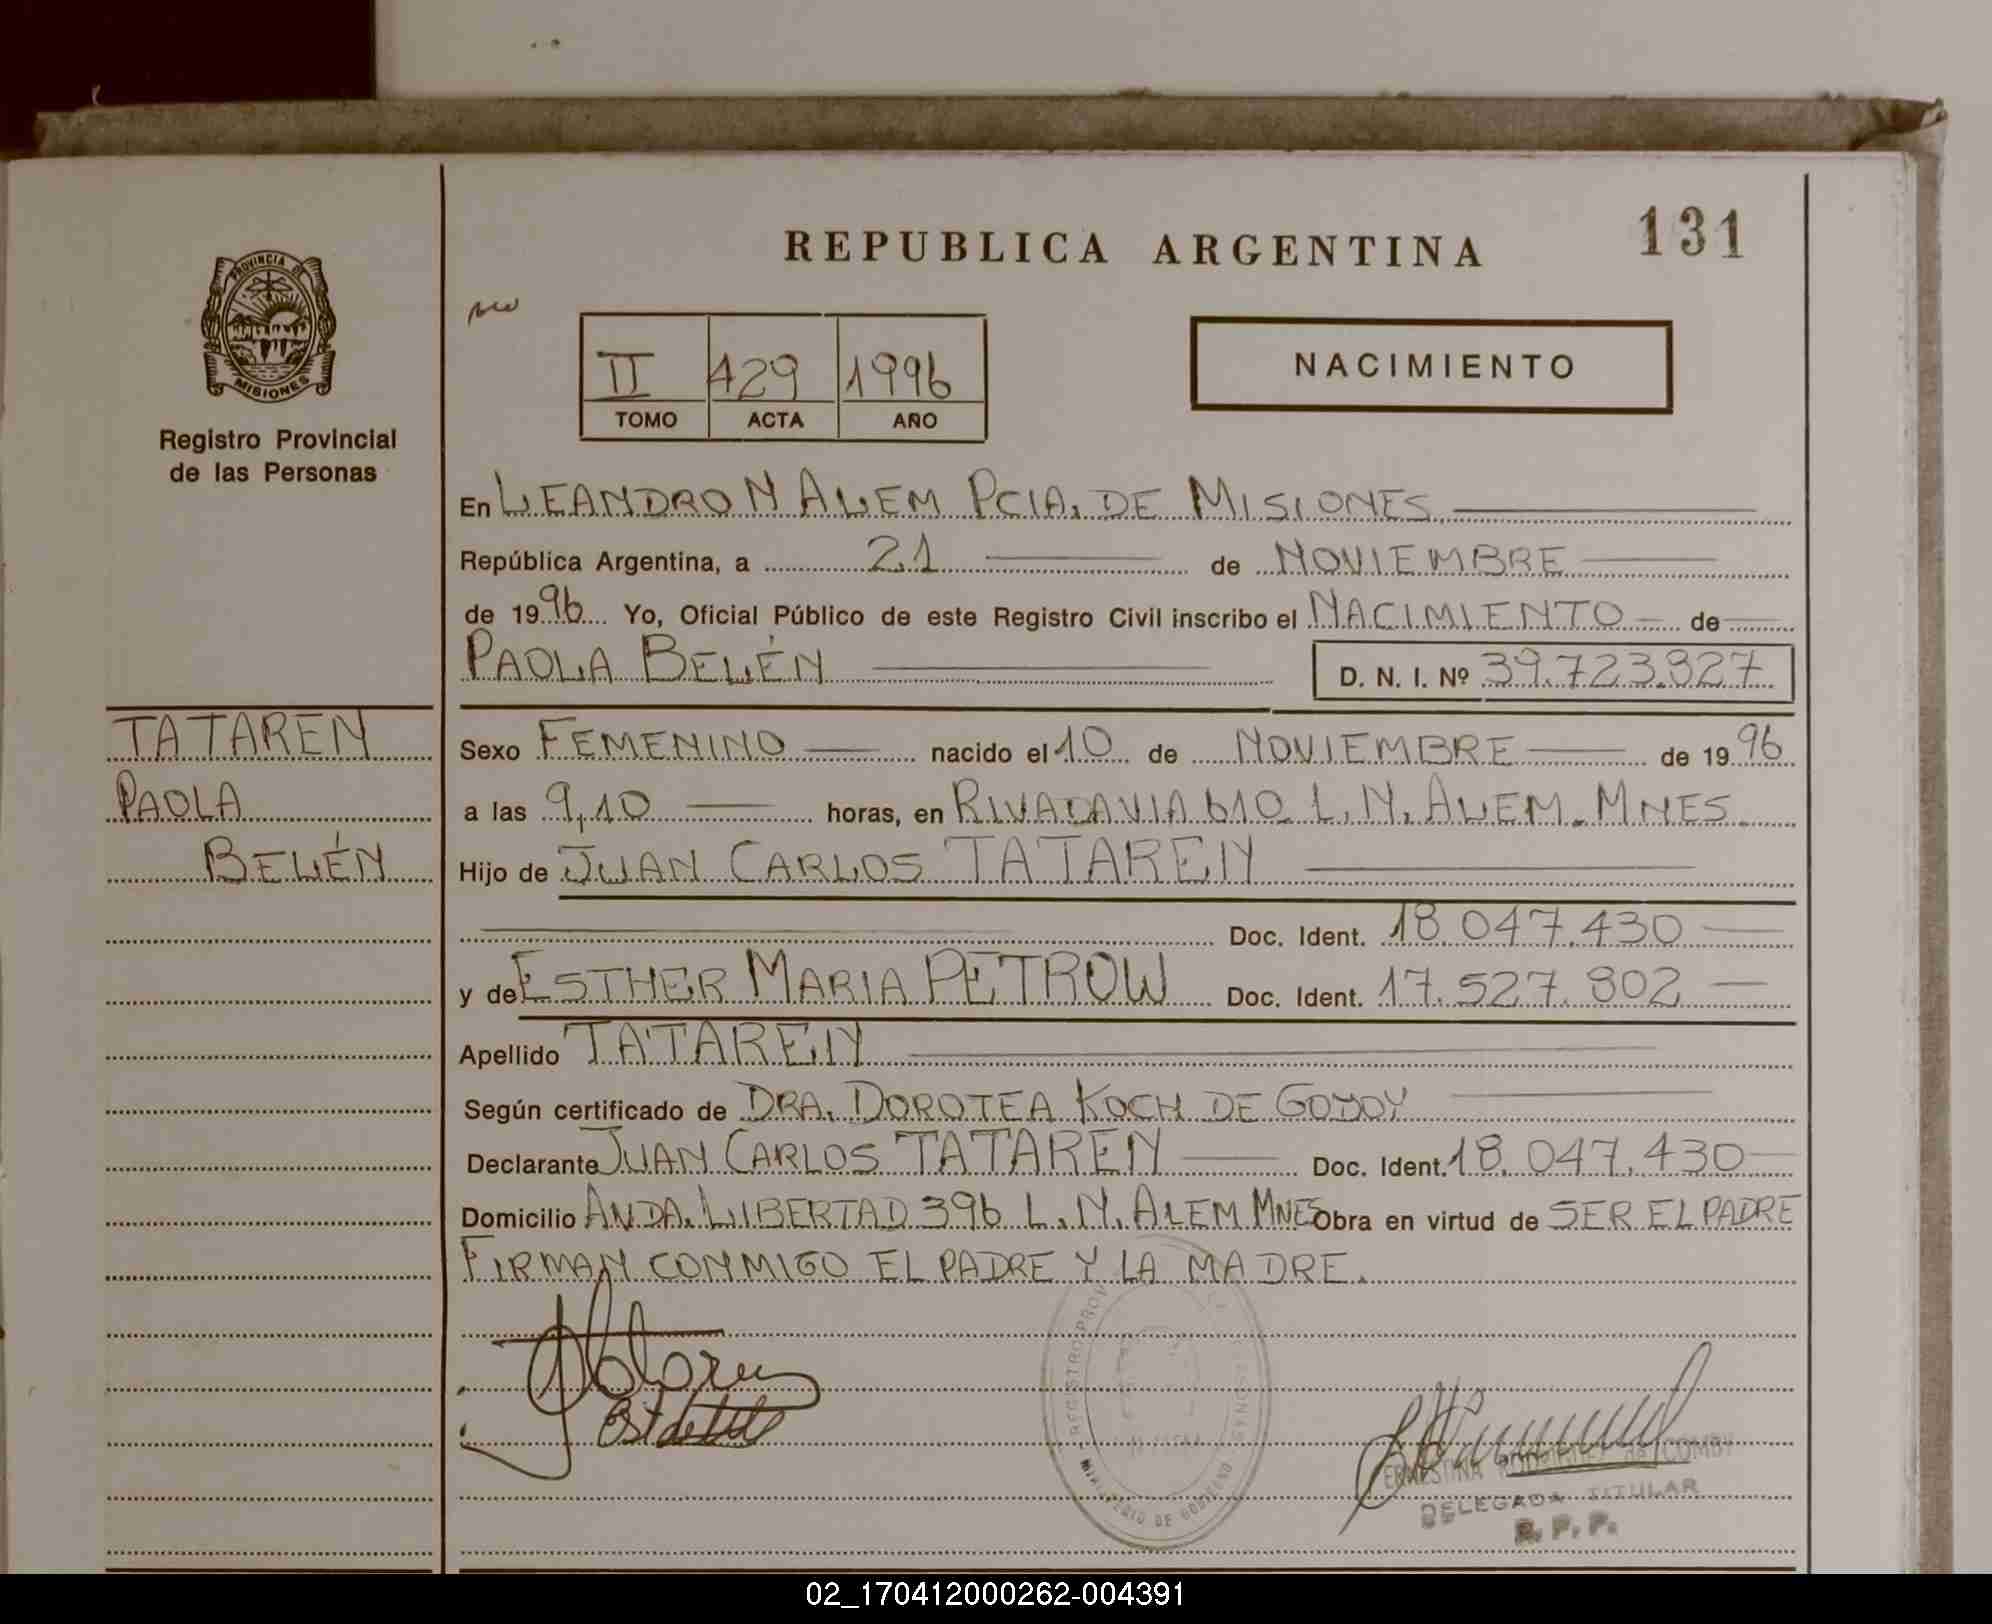 131
REPUBLICA ARGENTINA
PROVINCIA DE
MISIONES
Registro Provincial
de las Personas
II 429 1996
TOMO ACTA AÑO
NACIMIENTO
En LEANDRO N ALEM PCIA. DE MISIONES
República Argentina, a 21 de NOVIEMBRE
de 1996 Yo, Oficial Público de este Registro Civil inscribo el NACIMIENTO de
PAOLA BELÉN D. N. I. Nº 39.723.827
TATAREN
PAOLA
BELÉN
Sexo FEMENINO nacido el 10 de NOVIEMBRE de 1996
a las 9,10 horas, en RIVADAVIA 610 L. N. ALEM. MNES.
Hijo de JUAN CARLOS TATAREN
Doc. Ident. 18.047.430
y de ESTHER MARIA PETROW Doc. Ident. 17.527.802
Apellido TATAREN
Según certificado de DRA. DOROTEA KOCH DE GODOY
Declarante JUAN CARLOS TATAREN Doc. Ident. 18.047.430
Domicilio ANDA. LIBERTAD 396 L. N. ALEM MNES Obra en virtud de SER EL PADRE
FIRMAN CONMIGO EL PADRE Y LA MADRE.
REGISTRO PROV
MINISTERIO DE GOBIERNO
ERNESTINA RODRIGUEZ de COMBY
DELEGADA TITULAR
R. P. P.
02_170412000262-004391